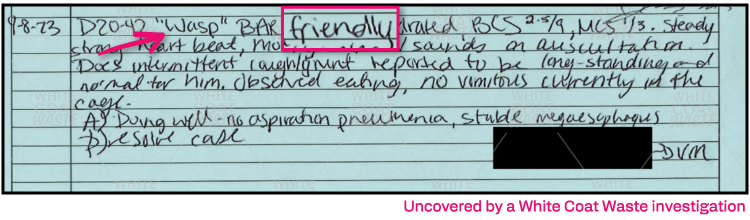 9-8-23 D20-42 "Wasp" BAR friendly BCS 2.5/9, MCS 1/3. Steady
strong heart beat, sounds on auscultation.
Does intermittent cough/grunt reported to be long-standing and
normal for him. Observed eating, no vomitous currently in the
cage.
A) Doing well - no aspiration pneumonia, stable megaesophagus
P) resolve case
DVM
Uncovered by a White Coat Waste investigation